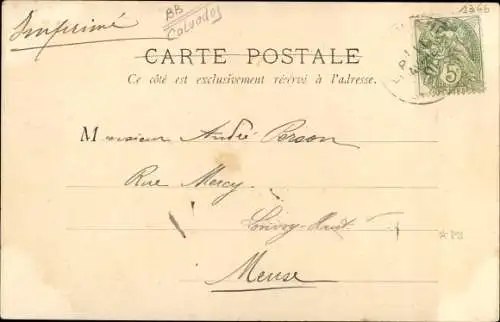 Imprimé
BB
Calvados
1366
CARTE POSTALE
Ce côté est exclusivement réservé à l'adresse.
5
Monsieur André Person
Rue Mercy
Meuse